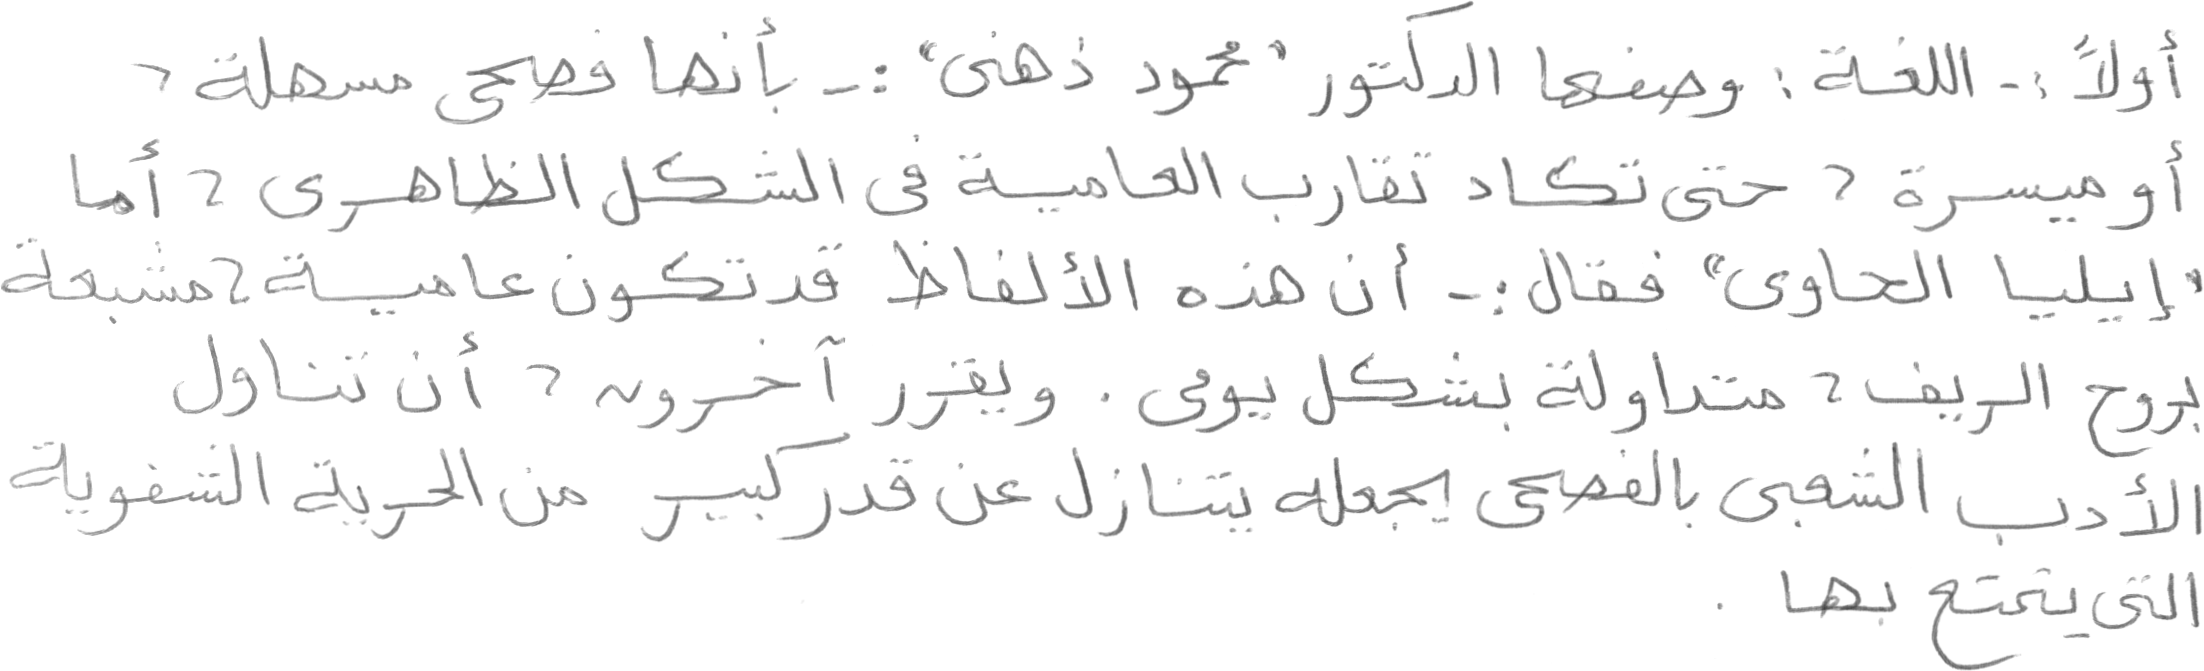 أولاً :- اللغة : وصفها الدكتور "محمود ذهنى" :- بأنها فصحى مسهلة ،
أو ميسرة ، حتى تكاد تقارب العامية فى الشكل الظاهرى ، أما
"إيليا الحاوى" فقال :- أن هذه الألفاظ قد تكون عامية ، مشبعة
بروح الريف ، متداولة بشكل يومى . ويقرر آخرون ، أن تناول
الأدب الشعبى بالفصحى يجعله يتنازل عن قدر كبير من الحرية الشفوية
التى يتمتع بها .